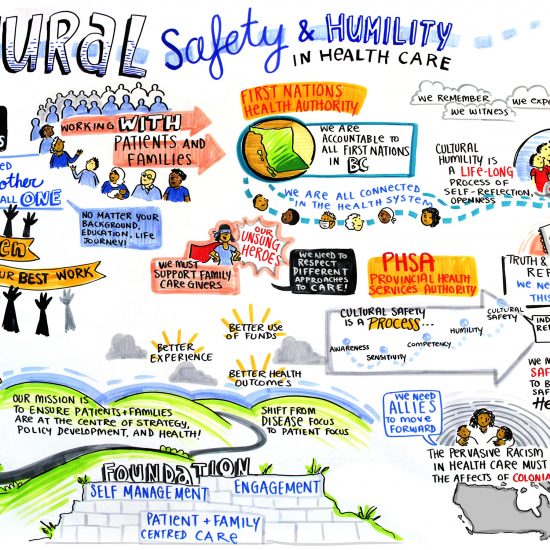 URAL Safety & HUMILITY
IN HEALTH CARE
WORKING WITH
PATIENTS AND
FAMILIES
FIRST NATIONS
HEALTH AUTHORITY
WE ARE
ACCOUNTABLE TO
ALL FIRST NATIONS
IN BC
WE REMEMBER
WE WITNESS
CULTURAL
HUMILITY IS
A LIFE-LONG
PROCESS OF
SELF-REFLECTION,
OPENNESS
WE ARE ALL CONNECTED
IN THE HEALTH SYSTEM
ALL ONE
NO MATTER YOUR
BACKGROUND,
EDUCATION, LIFE
JOURNEY!
UR BEST WORK
OUR
UNSUNG
HEROES
WE MUST
SUPPORT FAMILY
CARE GIVERS
WE NEED TO
RESPECT
DIFFERENT
APPROACHES
TO CARE!
PHSA
PROVINCIAL HEALTH
SERVICES AUTHORITY
TRUTH &
CULTURAL SAFETY
IS A PROCESS...
AWARENESS
SENSITIVITY
COMPETENCY
HUMILITY
CULTURAL
SAFETY
BETTER
EXPERIENCE
BETTER USE
OF FUNDS
BETTER HEALTH
OUTCOMES
OUR MISSION IS
TO ENSURE PATIENTS+FAMILIES
ARE AT THE CENTRE OF STRATEGY,
POLICY DEVELOPMENT, AND HEALTH!
SHIFT FROM
DISEASE FOCUS
TO PATIENT FOCUS
WE NEED
ALLIES
TO MOVE
FORWARD
THE PERVASIVE RACISM
IN HEALTH CARE MUST
THE AFFECTS OF COLONIA
FOUNDATION
SELF MANAGEMENT
ENGAGEMENT
PATIENT + FAMILY
CENTRED CARE